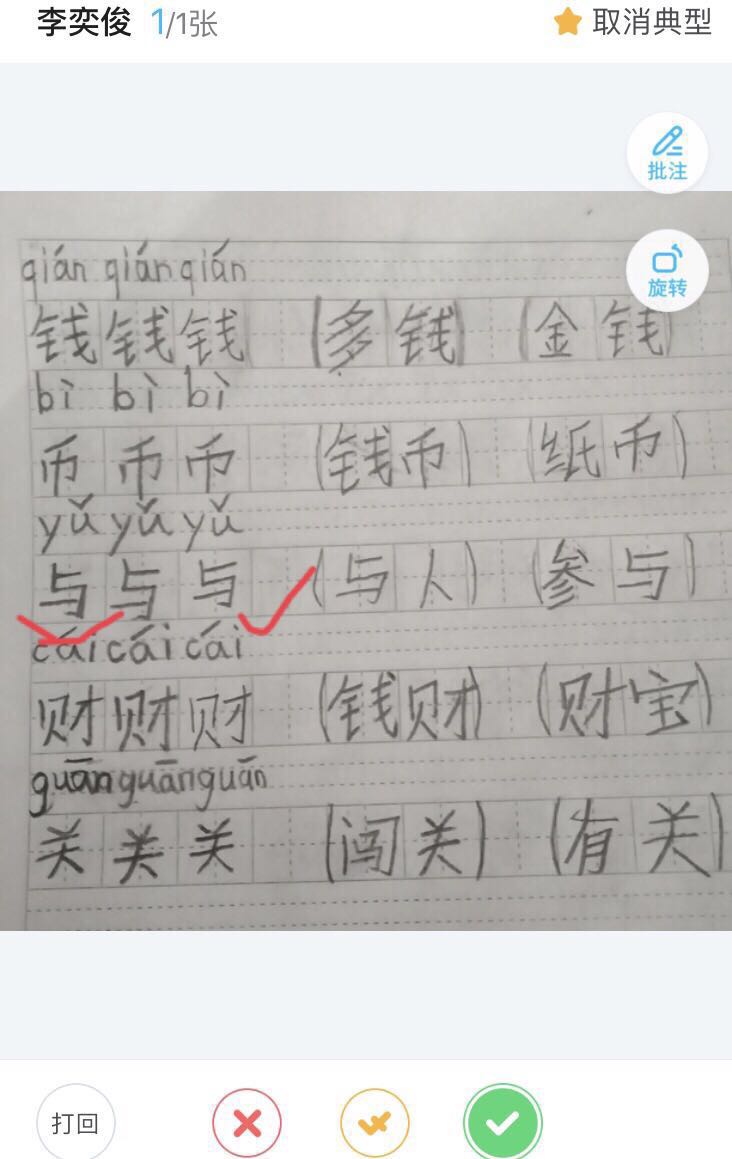 李奕俊 1/1张 取消典型
批注
旋转
qián qián qián
钱钱钱 (多钱) (金钱)
bì bì bì
币币币 (钱币) (纸币)
yǔ yǔ yǔ
与与与 (与人) (参与)
cái cái cái
财财财 (钱财) (财宝)
guān guān guān
关关关 (闯关) (有关)
打回